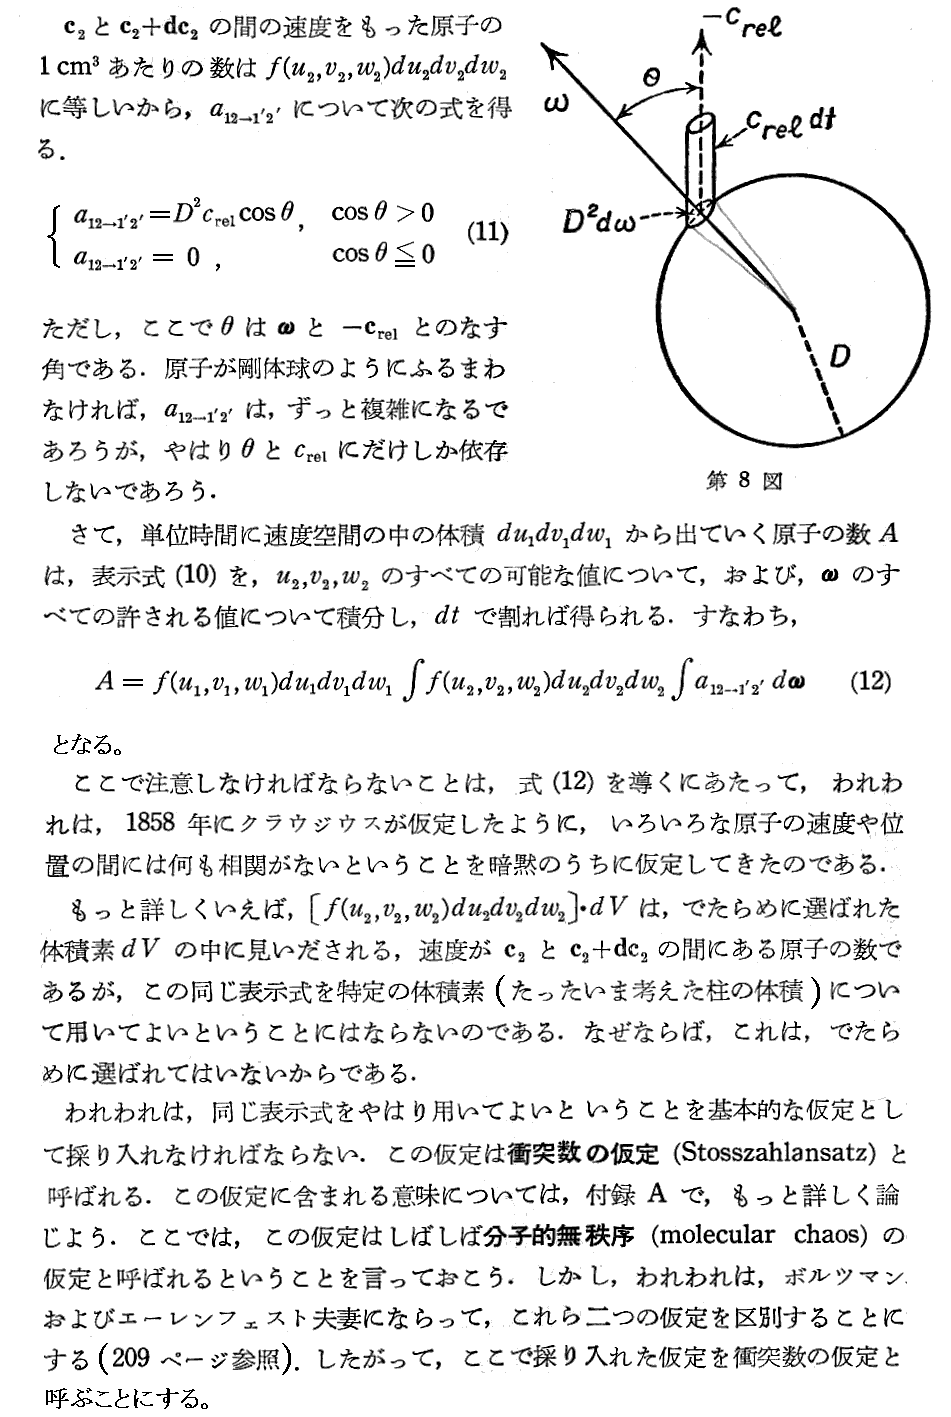 c₂とc₂+dc₂の間の速度をもった原子の
1cm³あたりの数はf(u₂,v₂,w₂)du₂dv₂dw₂
に等しいから，a₁₂→₁′₂′について次の式を得
る．
a₁₂→₁′₂′=D²c_rel cosθ, cosθ>0
(11)
a₁₂→₁′₂′= 0 , cosθ≦0
ただし，ここでθはωと−c_relとのなす
角である．原子が剛体球のようにふるまわ
なければ，a₁₂→₁′₂′は，ずっと複雑になるで
あろうが，やはりθとc_relにだけしか依存
しないであろう．
−c_rel
θ
ω
c_rel dt
D²dω
D
第 8 図
さて，単位時間に速度空間の中の体積 du₁dv₁dw₁ から出ていく原子の数 A
は，表示式 (10) を，u₂,v₂,w₂ のすべての可能な値について，および，ω のす
べての許される値について積分し，dt で割れば得られる．すなわち，
A = f(u₁,v₁,w₁)du₁dv₁dw₁∫f(u₂,v₂,w₂)du₂dv₂dw₂∫a₁₂→₁′₂′dω (12)
となる。
ここで注意しなければならないことは，式 (12) を導くにあたって，われわ
れは，1858 年にクラウジウスが仮定したように，いろいろな原子の速度や位
置の間には何も相関がないということを暗黙のうちに仮定してきたのである．
もっと詳しくいえば，[f(u₂,v₂,w₂)du₂dv₂dw₂]・dV は，でたらめに選ばれた
体積素 dV の中に見いだされる，速度が c₂ と c₂+dc₂ の間にある原子の数で
あるが，この同じ表示式を特定の体積素 (たったいま考えた柱の体積) につい
て用いてよいということにはならないのである．なぜならば，これは，でたら
めに選ばれてはいないからである．
われわれは，同じ表示式をやはり用いてよいということを基本的な仮定とし
て採り入れなければならない．この仮定は衝突数の仮定 (Stosszahlansatz) と
呼ばれる．この仮定に含まれる意味については，付録 A で，もっと詳しく論
じよう．ここでは，この仮定はしばしば分子的無秩序 (molecular chaos) の
仮定と呼ばれるということを言っておこう．しかし，われわれは，ボルツマン
およびエーレンフェスト夫妻にならって，これら二つの仮定を区別することに
する (209 ページ参照)．したがって，ここで採り入れた仮定を衝突数の仮定と
呼ぶことにする。